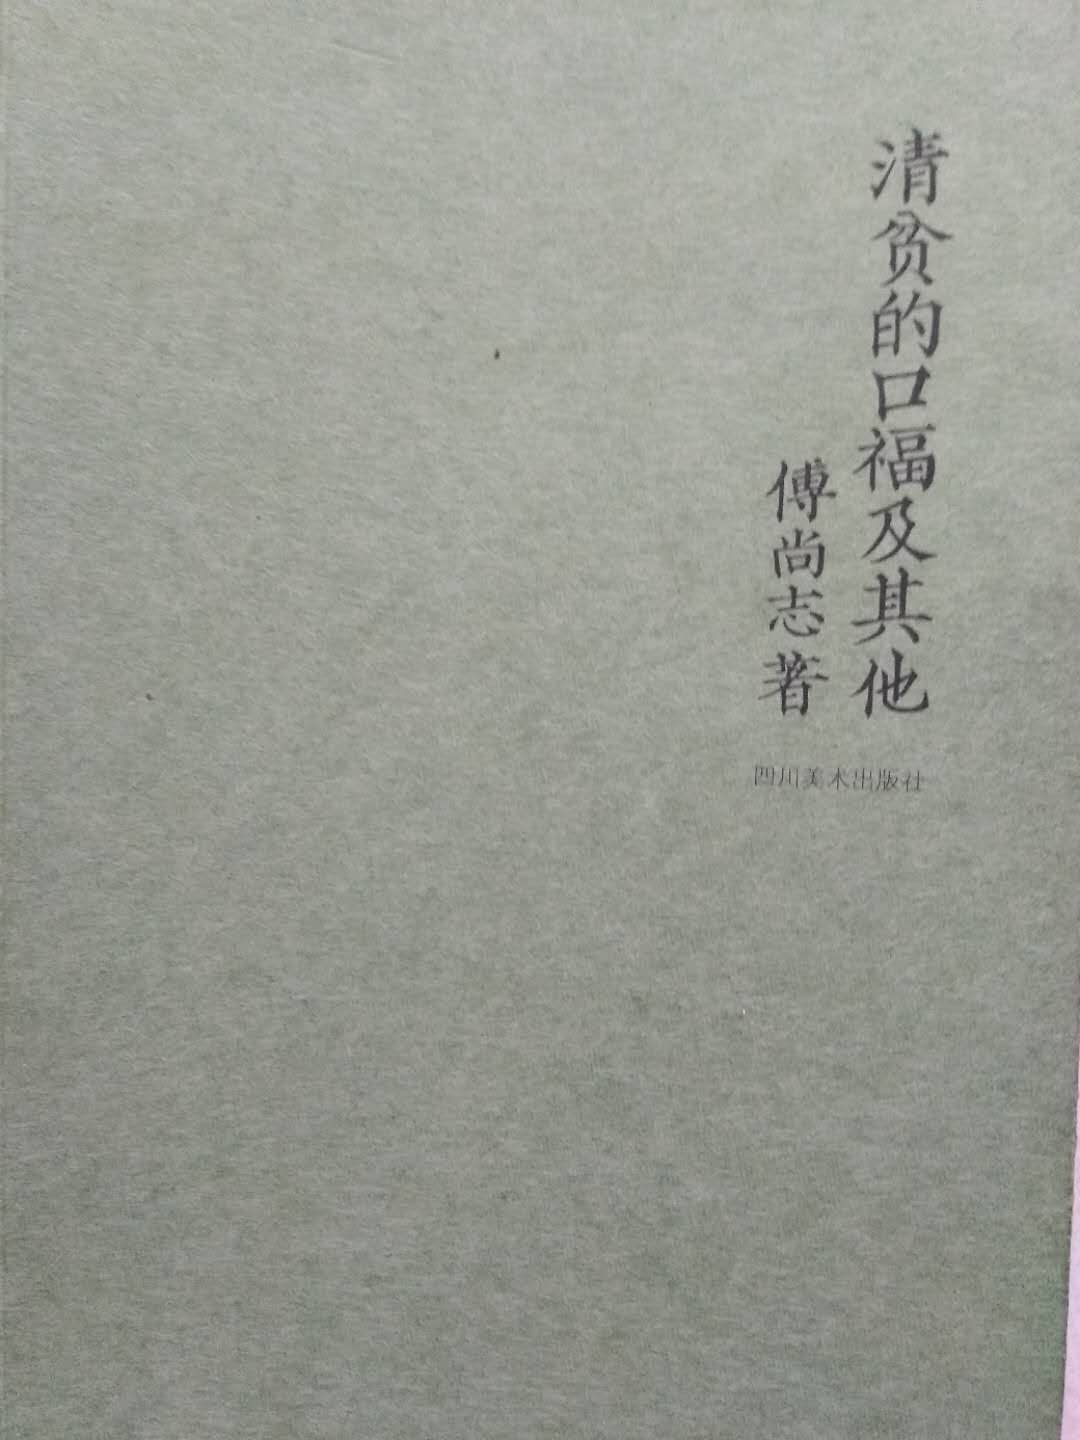 清贫的口福及其他
傅尚志著
四川美术出版社